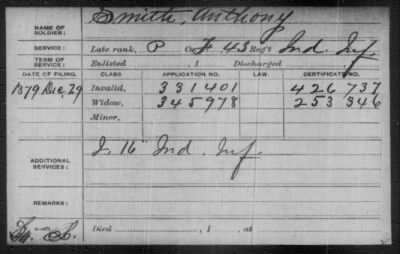 NAME OF SOLDIER: Smith, Anthony
SERVICE: Late rank, P Co. F, 43 Reg't Ind. Inf.
TERM OF SERVICE: Enlisted , 1 Discharged , 1
DATE OF FILING. CLASS. APPLICATION NO. LAW. CERTIFICATE NO.
1879 Dec, 29 Invalid, 331401 426737
Widow, 345978 253346
Minor,
ADDITIONAL SERVICES: I. 16" Ind. Inf.
REMARKS:
Died , 1 , at